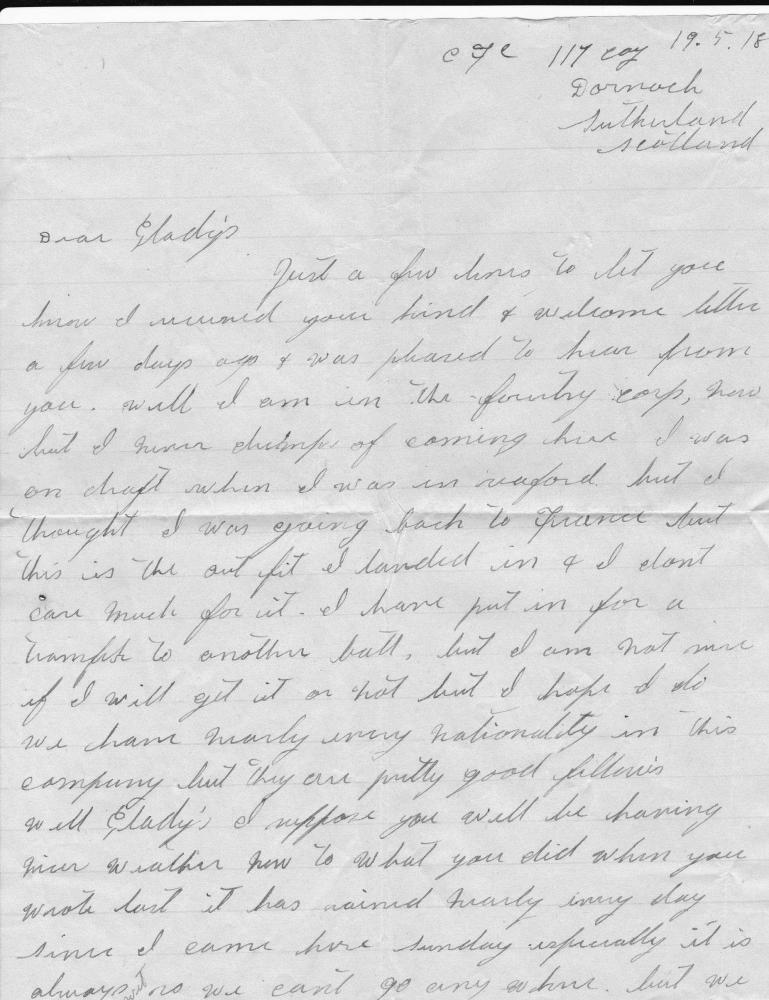 C F C 117 coy 19.5.18
Dornoch
Sutherland
Scotland
Dear Gladys
Just a few lines to let you
know I received your kind & welcome letter
a few days ago & was pleased to hear from
you. well I am in the forestry corp, now
but I never of coming here I was
on draft when I was in seaford. but I
thought I was going back to France but
this is the out fit I landed in & I dont
care much for it. I have put in for a
to another batt, but I am not sure
if I will get it or not but I hope I do
we have nearly every nationality in this
company but they are pretty good fellows
well Gladys I suppose you will be having
nicer weather now to what you did when you
wrote last it has rained nearly every day
since I came here sunday especially it is
always wet so we cant go any where. but we